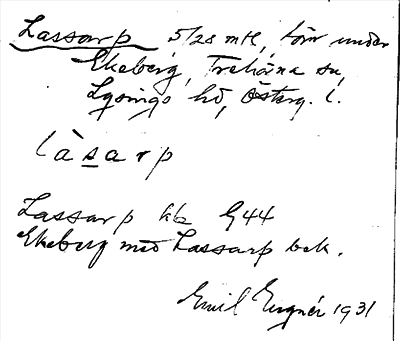 Lassarp 5/28 mtl, förr under
Ekeberg, Trehörna sn,
Lysings hd, Österg. l.
låsarp
Lassarp kb G44
Ekeberg med Lassarp bek.
Emil 1931